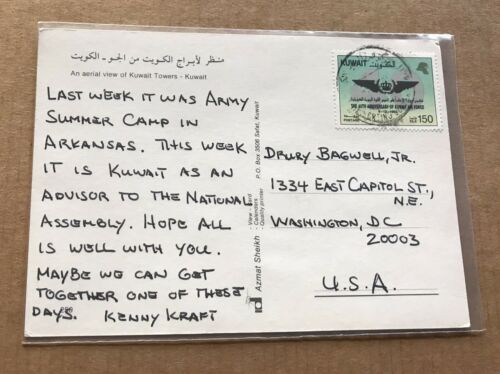 منظر لأبراج الكويت من الجو - الكويت
An aerial view of Kuwait Towers - Kuwait
LAST WEEK IT WAS ARMY
SUMMER CAMP IN
ARKANSAS. THIS WEEK
IT IS KUWAIT AS AN
ADVISOR TO THE NATIONAL
ASSEMBLY. HOPE ALL
IS WELL WITH YOU.
MAYBE WE CAN GET
TOGETHER ONE OF THESE
DAYS. KENNY KRAFT
Azmat Sheikh
- View Card
- Calenders
- Quality printer
P.O. Box 3506 Safat, Kuwait
KUWAIT
الكويت
THE 40TH ANNIVERSARY OF KUWAIT AIR FORCE
POSTAGE
150
DRURY BAGWELL, JR.
1334 EAST CAPITOL ST.,
N.E.
WASHINGTON, DC
20003
U.S.A.